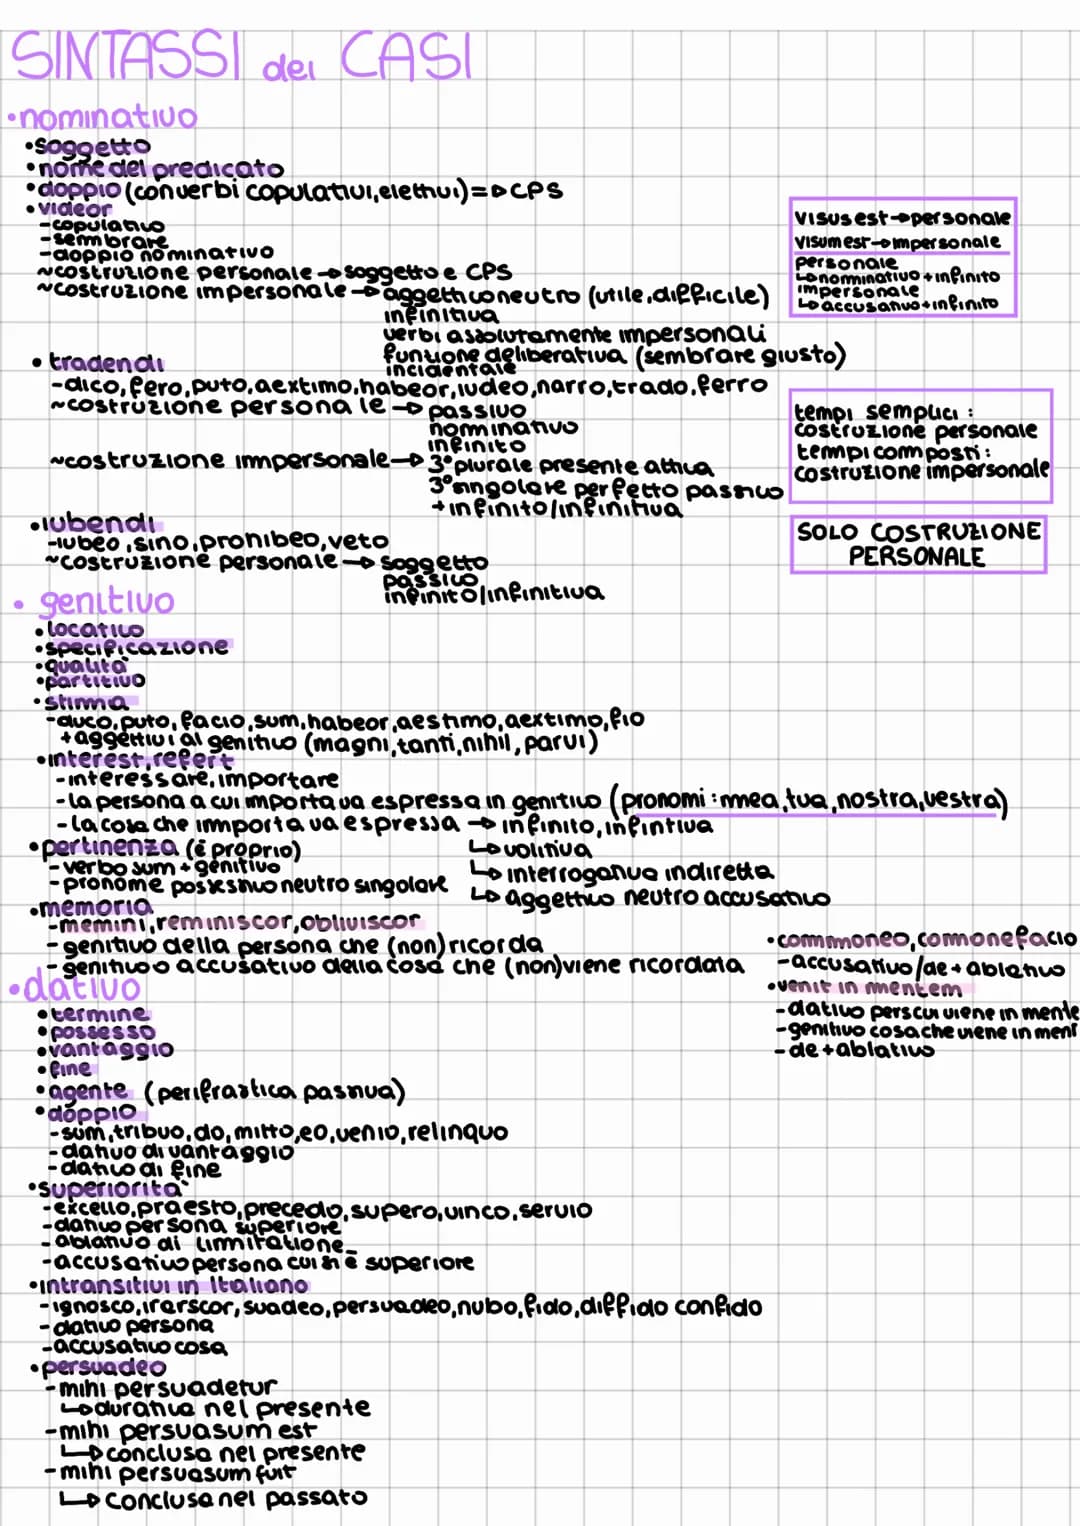 SINTASSI dei CASI
•nominativo
•soggetto
•nome del predicato
•doppio (con verbi copulativi, elettivi) => CPS
•videor
-copulativo
-sembrare
-doppio nominativo
~costruzione personale → soggetto e CPS
~costruzione impersonale → aggettivo neutro (utile, difficile)
infinitiva
verbi assolutamente impersonali
funzione deliberativa (sembrare giusto)
incidentale
visus est → personale
visum est → impersonale
personale
↳ nominativo + infinito
impersonale
↳ accusativo + infinito
•tradendi
-dico, fero, puto, aextimo, habeor, iudeo, narro, trado, ferro
~costruzione personale → passivo
nominativo
infinito
~costruzione impersonale → 3° plurale presente attiva
3° singolare perfetto passivo
+ infinito/infinitiva
tempi semplici:
costruzione personale
tempi composti:
costruzione impersonale
•iubendi
-iubeo, sino, prohibeo, veto
~costruzione personale → soggetto
passivo
infinito/infinitiva
SOLO COSTRUZIONE
PERSONALE
•genitivo
•locativo
•specificazione
•qualità
•partitivo
•stima
-duco, puto, facio, sum, habeor, aestimo, aextimo, fio
+ aggettivi al genitivo (magni, tanti, nihil, parvi)
•interest, refert
-interessare, importare
-la persona a cui importa va espressa in genitivo (pronomi: mea, tua, nostra, vestra)
-la cosa che importa va espressa → infinito, infintiva
↳ volitiva
↳ interrogativa indiretta
↳ aggettivo neutro accusativo
•pertinenza (è proprio)
-verbo sum + genitivo
-pronome possessivo neutro singolare
•memoria
-memini, reminiscor, obliviscor
-genitivo della persona che (non) ricorda
-genitivo o accusativo della cosa che (non) viene ricordata
•commoneo, commonefacio
-accusativo/de + ablativo
•venit in mentem
-dativo pers cui viene in mente
-genitivo cosa che viene in ment
-de + ablativo
•dativo
•termine
•possesso
•vantaggio
•fine
•agente (perifrastica passiva)
•doppio
-sum, tribuo, do, mitto, eo, venio, relinquo
-dativo di vantaggio
-dativo di fine
•superiorità
-excello, praesto, precedo, supero, vinco, servio
-dativo persona superiore
-ablativo di limitazione
-accusativo persona cui si è superiore
•intransitivi in Italiano
-ignosco, irarscor, suadeo, persuadeo, nubo, fido, diffido confido
-dativo persona
-accusativo cosa
•persuadeo
-mihi persuadetur
↳ durativa nel presente
-mihi persuasum est
↳ conclusa nel presente
-mihi persuasum fuit
↳ conclusa nel passato